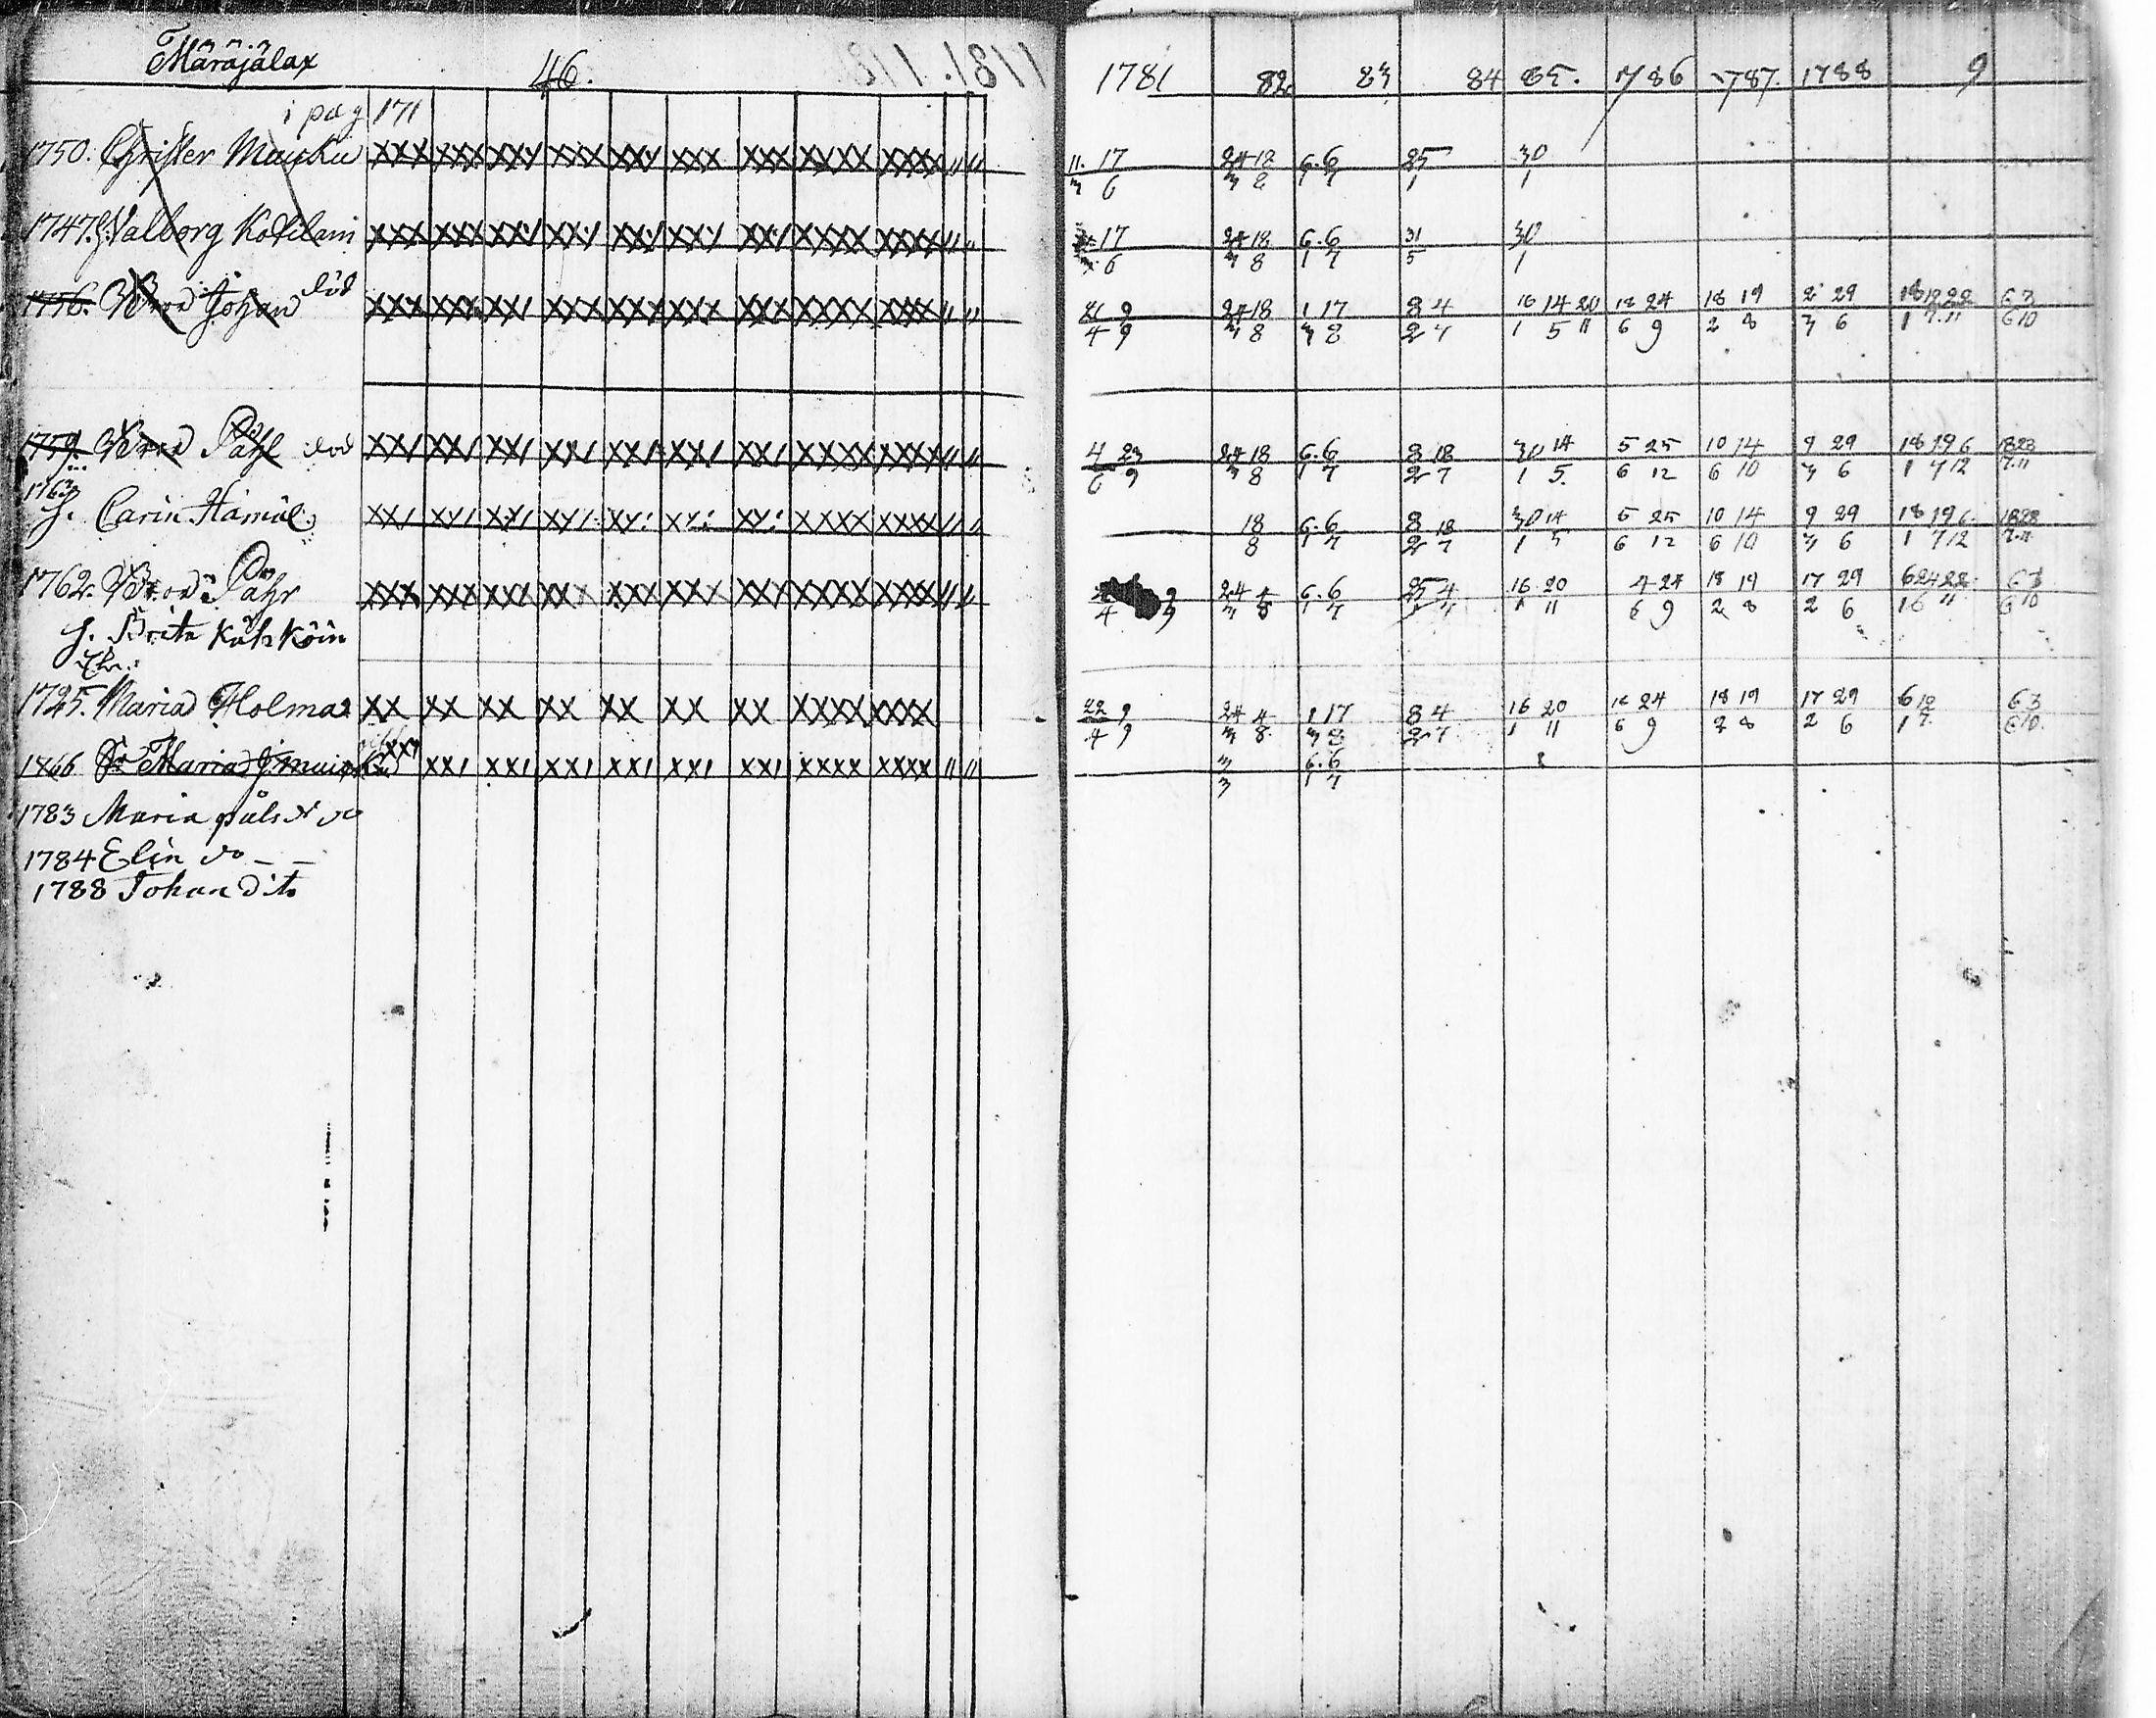 Märäjälax 46. 1781 82 83 84 85. 1786 1787. 1788 9
i pag 171
1750. Christer Mauku XXX XXX XXI XXX XXI XXX XXX XXXX XXXX 11. 17 24 18 6. 6 25 30
3 6 3 8 1 7 1 1
1747. H. Valborg Kotilain XXX XXX XXI XXI XXI XXI XXI XXXX XXXX 17 24 18 6. 6 31 30
6 3 8 1 7 5 1
död
1756. Brod Johan XXX XXX XXI XXX XXX XXX XXX XXXX XXXX 21 9 24 18 1 17 8 4 16 14 20 18 24 18 19 2 29 18 18 22 6 3
4 9 3 8 3 8 2 7 1 5 11 6 9 2 8 3 6 1 7. 11 6 10
1759. Brod Påhl död XXI XXI XXI XXI XXI XXI XXI XXXX XXXX 4 23 24 18 6. 6 8 18 30 14 5 25 10 14 9 29 18 19 6 18 23
6 9 3 8 1 7 2 7 1 5. 6 12 6 10 3 6 1 7 12 7. 11
1763
H. Carin Hämäl. XXI XXI XXI XXI XXI XXI XXI XXXX XXXX 18 6. 6 8 18 30 14 5 25 10 14 9 29 18 19 6
8 1 7 2 7 1 5 6 12 6 10 3 6 1 7 12 7. 11
1762. Brod Pähr XXX XXX XXI XXX XXX XXX XXX XXXX XXXX 9 24 4 6. 6 25 4 16 20 4 24 18 19 17 29 6 24 22 6 3
4 9 3 8 1 7 1 11 6 9 2 8 2 6 1 6 11 6 10
H. Brita Kähköin
1725. Maria Holma XX XX XX XX XX XX XX XXXX XXXX 22 9 24 4 1 17 8 4 16 20 18 24 18 19 17 29 6 18 6 3
4 9 3 8. 3 8 2 7 1 11 6 9 2 8 2 6 1 7. 6 10.
1766 Maria XXI XXI XXI XXI XXI XXI XXI XXXX XXXX 3 6. 6
3 1 7
1783 Maria påls d do
1784 Elin do
1788 Johan dito